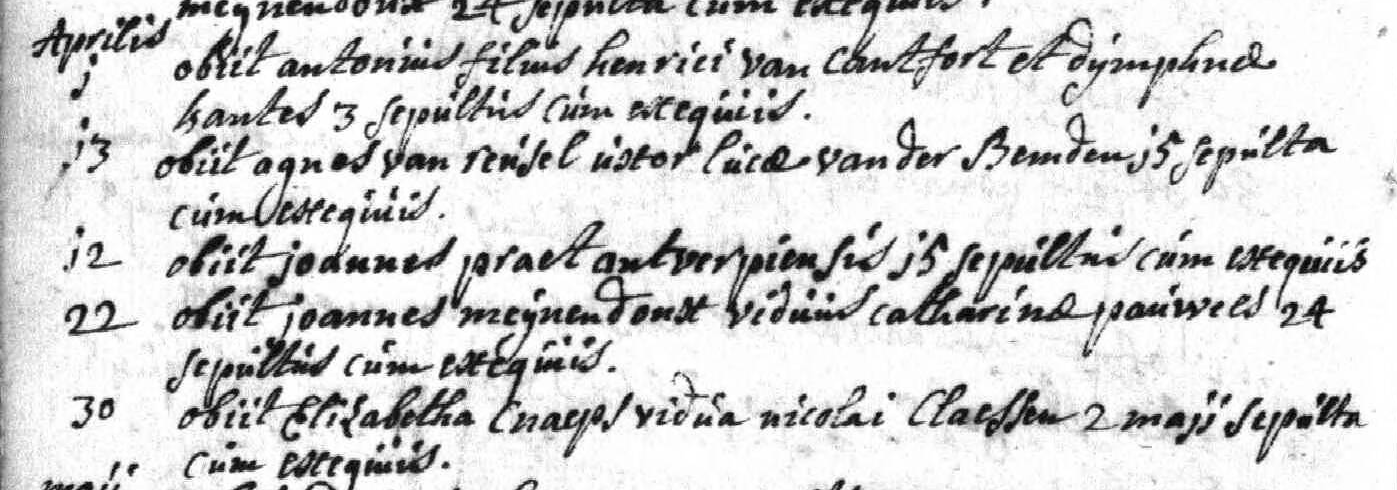 meynendonx 24 sepulta cum exequiis.
Aprilis
j obiit antonius filius henrici van Cantfort et dÿmphnæ
hantes 3 sepultus cum exequiis.
j3 obiit agnes van reusel uxor lucæ vander Bemden j5 sepulta
cum exequiis.
j2 obiit joannes praet antverpiensis j5 sepultus cum exequiis
22 obiit joannes meÿnendonx viduus catharinæ pauwels 24
sepultus cum exequiis.
30 obiit Elizabetha Cnaeps vidua nicolai Claessen 2 maji sepulta
cum exequiis.
maji